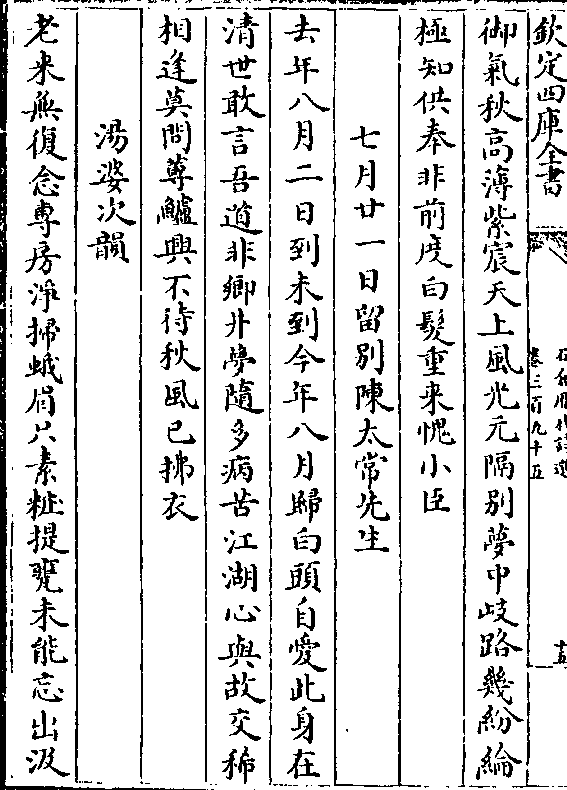 欽定四庫全書
卷三百九十五
御氣秋高薄紫宸天上風光元隔別夢中岐路幾紛綸
極知供奉非前度白髮重来愧小臣
七月廿一日留別陳太常先生
去年八月二日到未到今年八月歸白頭自愛此身在
清世敢言吾道非鄉井夢隨多病苦江湖心與故交稀
相逢莫問蓴鱸興不待秋風已拂衣
湯婆次韻
老来無復念專房淨掃蛾眉只素粧提甕未能忘出汲